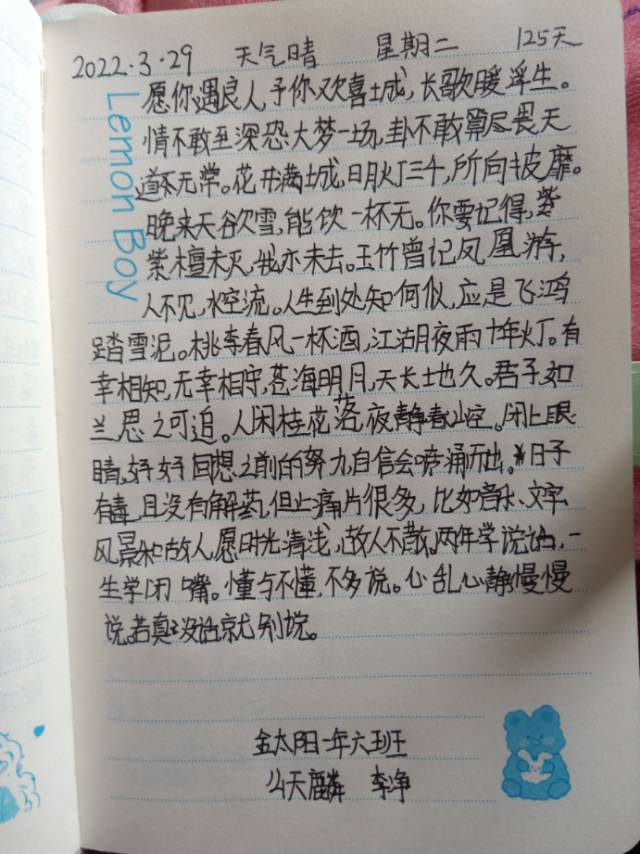 2022.3.29 天气晴 星期二 125天
Lemon Boy
愿你遇良人,予你欢喜城,长歌暖浮生。
情不敢至深,恐大梦一场,卦不敢算尽畏天
道不无常。花开满城,日月灯三千,所向披靡。
晚来天欲雪,能饮一杯无。你要记得,紫
紫檀未灭,我亦未去。玉竹曾记凤凰游,
人不见,水空流。人生到处知何似,应是飞鸿
踏雪泥。桃李春风一杯酒,江湖月夜雨十年灯。有
幸相知,无幸相守,苍海明月,天长土也久。君子如
兰思之可追。人闲桂花落,夜静春山空。闭上眼
睛,好好回想之前的努力,自信会喷涌而出。日子
有毒,且没有解药,但止痛片很多,比如音乐、文字、
风景和故人,愿时光清浅,故人不散。两年学说话,一
生学闭嘴。懂与不懂,不多说。心乱心静慢慢
说。若真没话就别说。
金太阳一年六班
公天麟 李净